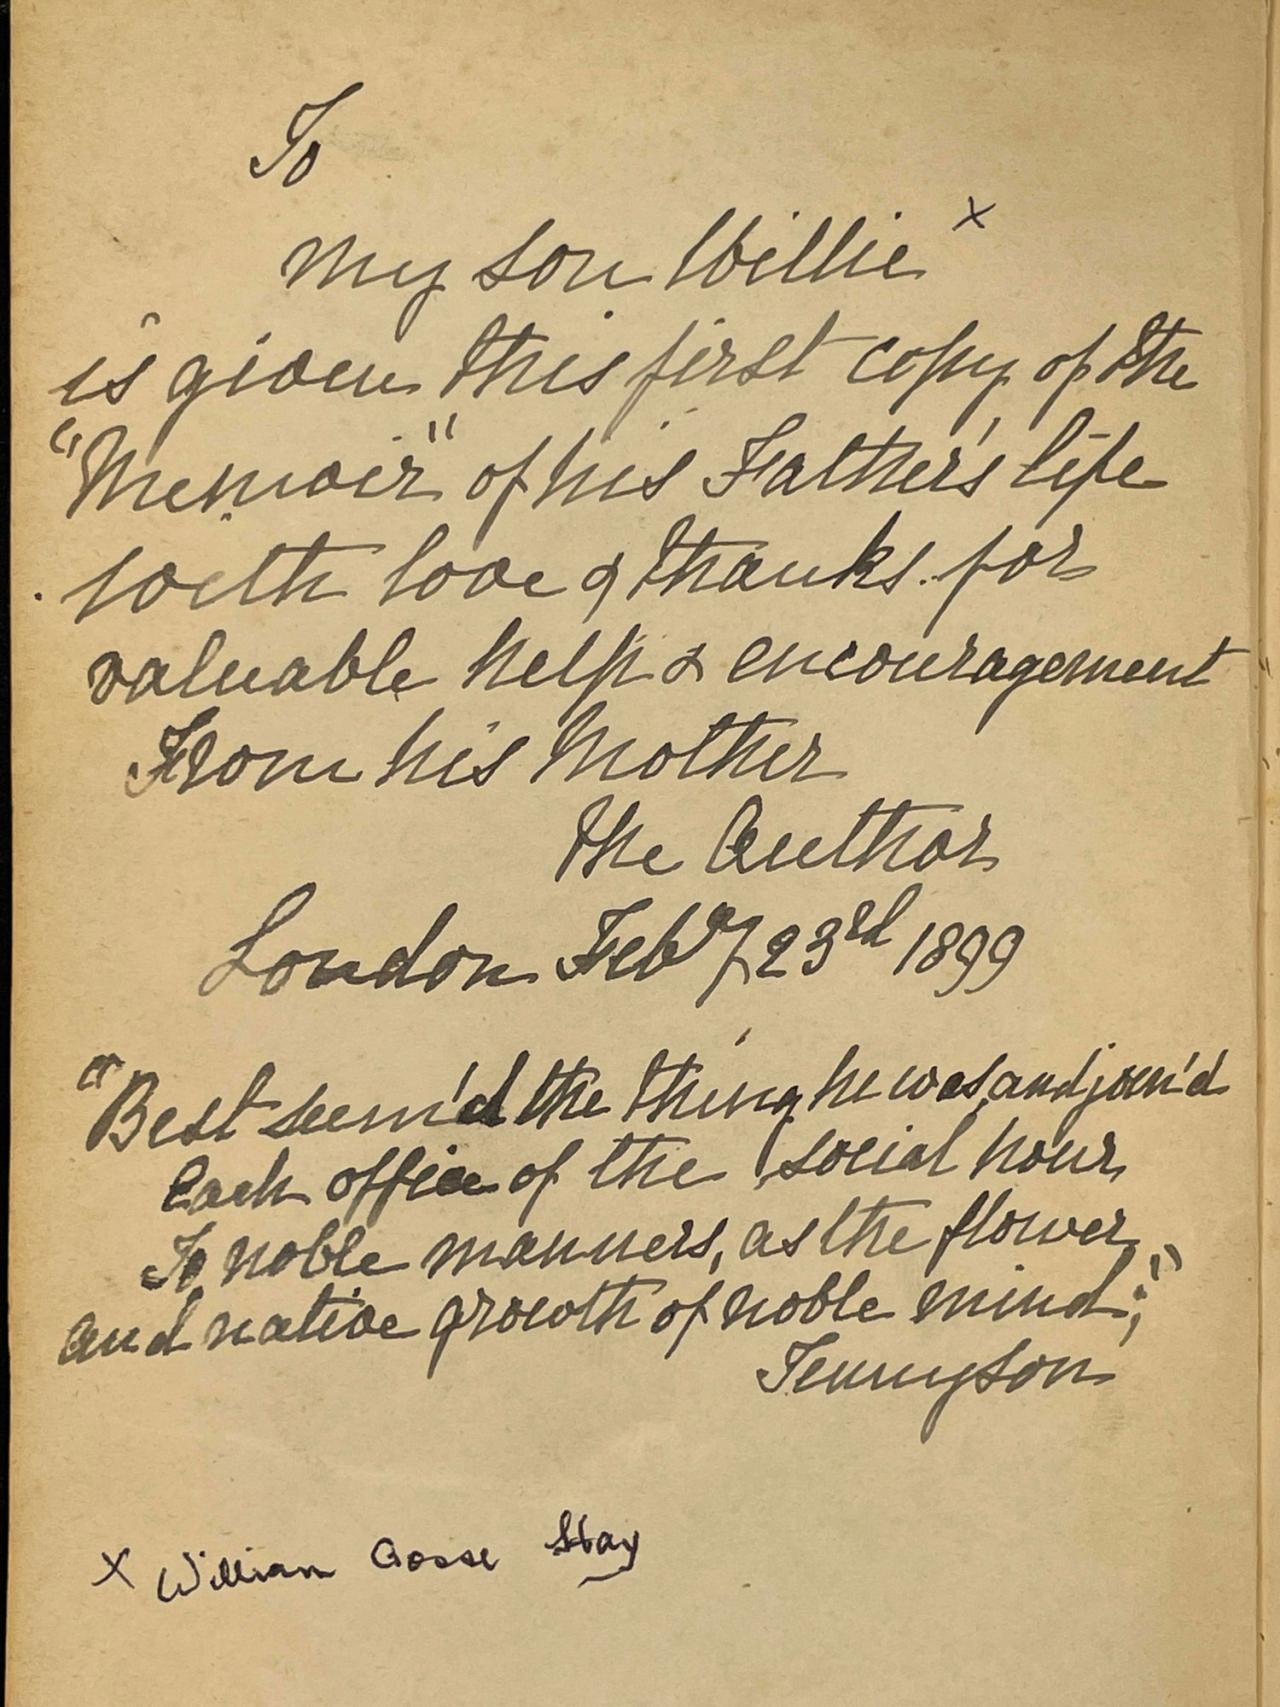 To
my son Willie x
is given this first copy of the
"Memoir" of his Father's life
with love & thanks for
valuable help & encouragement
From his Mother
The Author
London Feby 23rd 1899
"Best seem'd the thing he was, and join'd
Each office of the social hour
To noble manners, as the flower
and native growth of noble mind;"
Tennyson
x William Gosse Hay